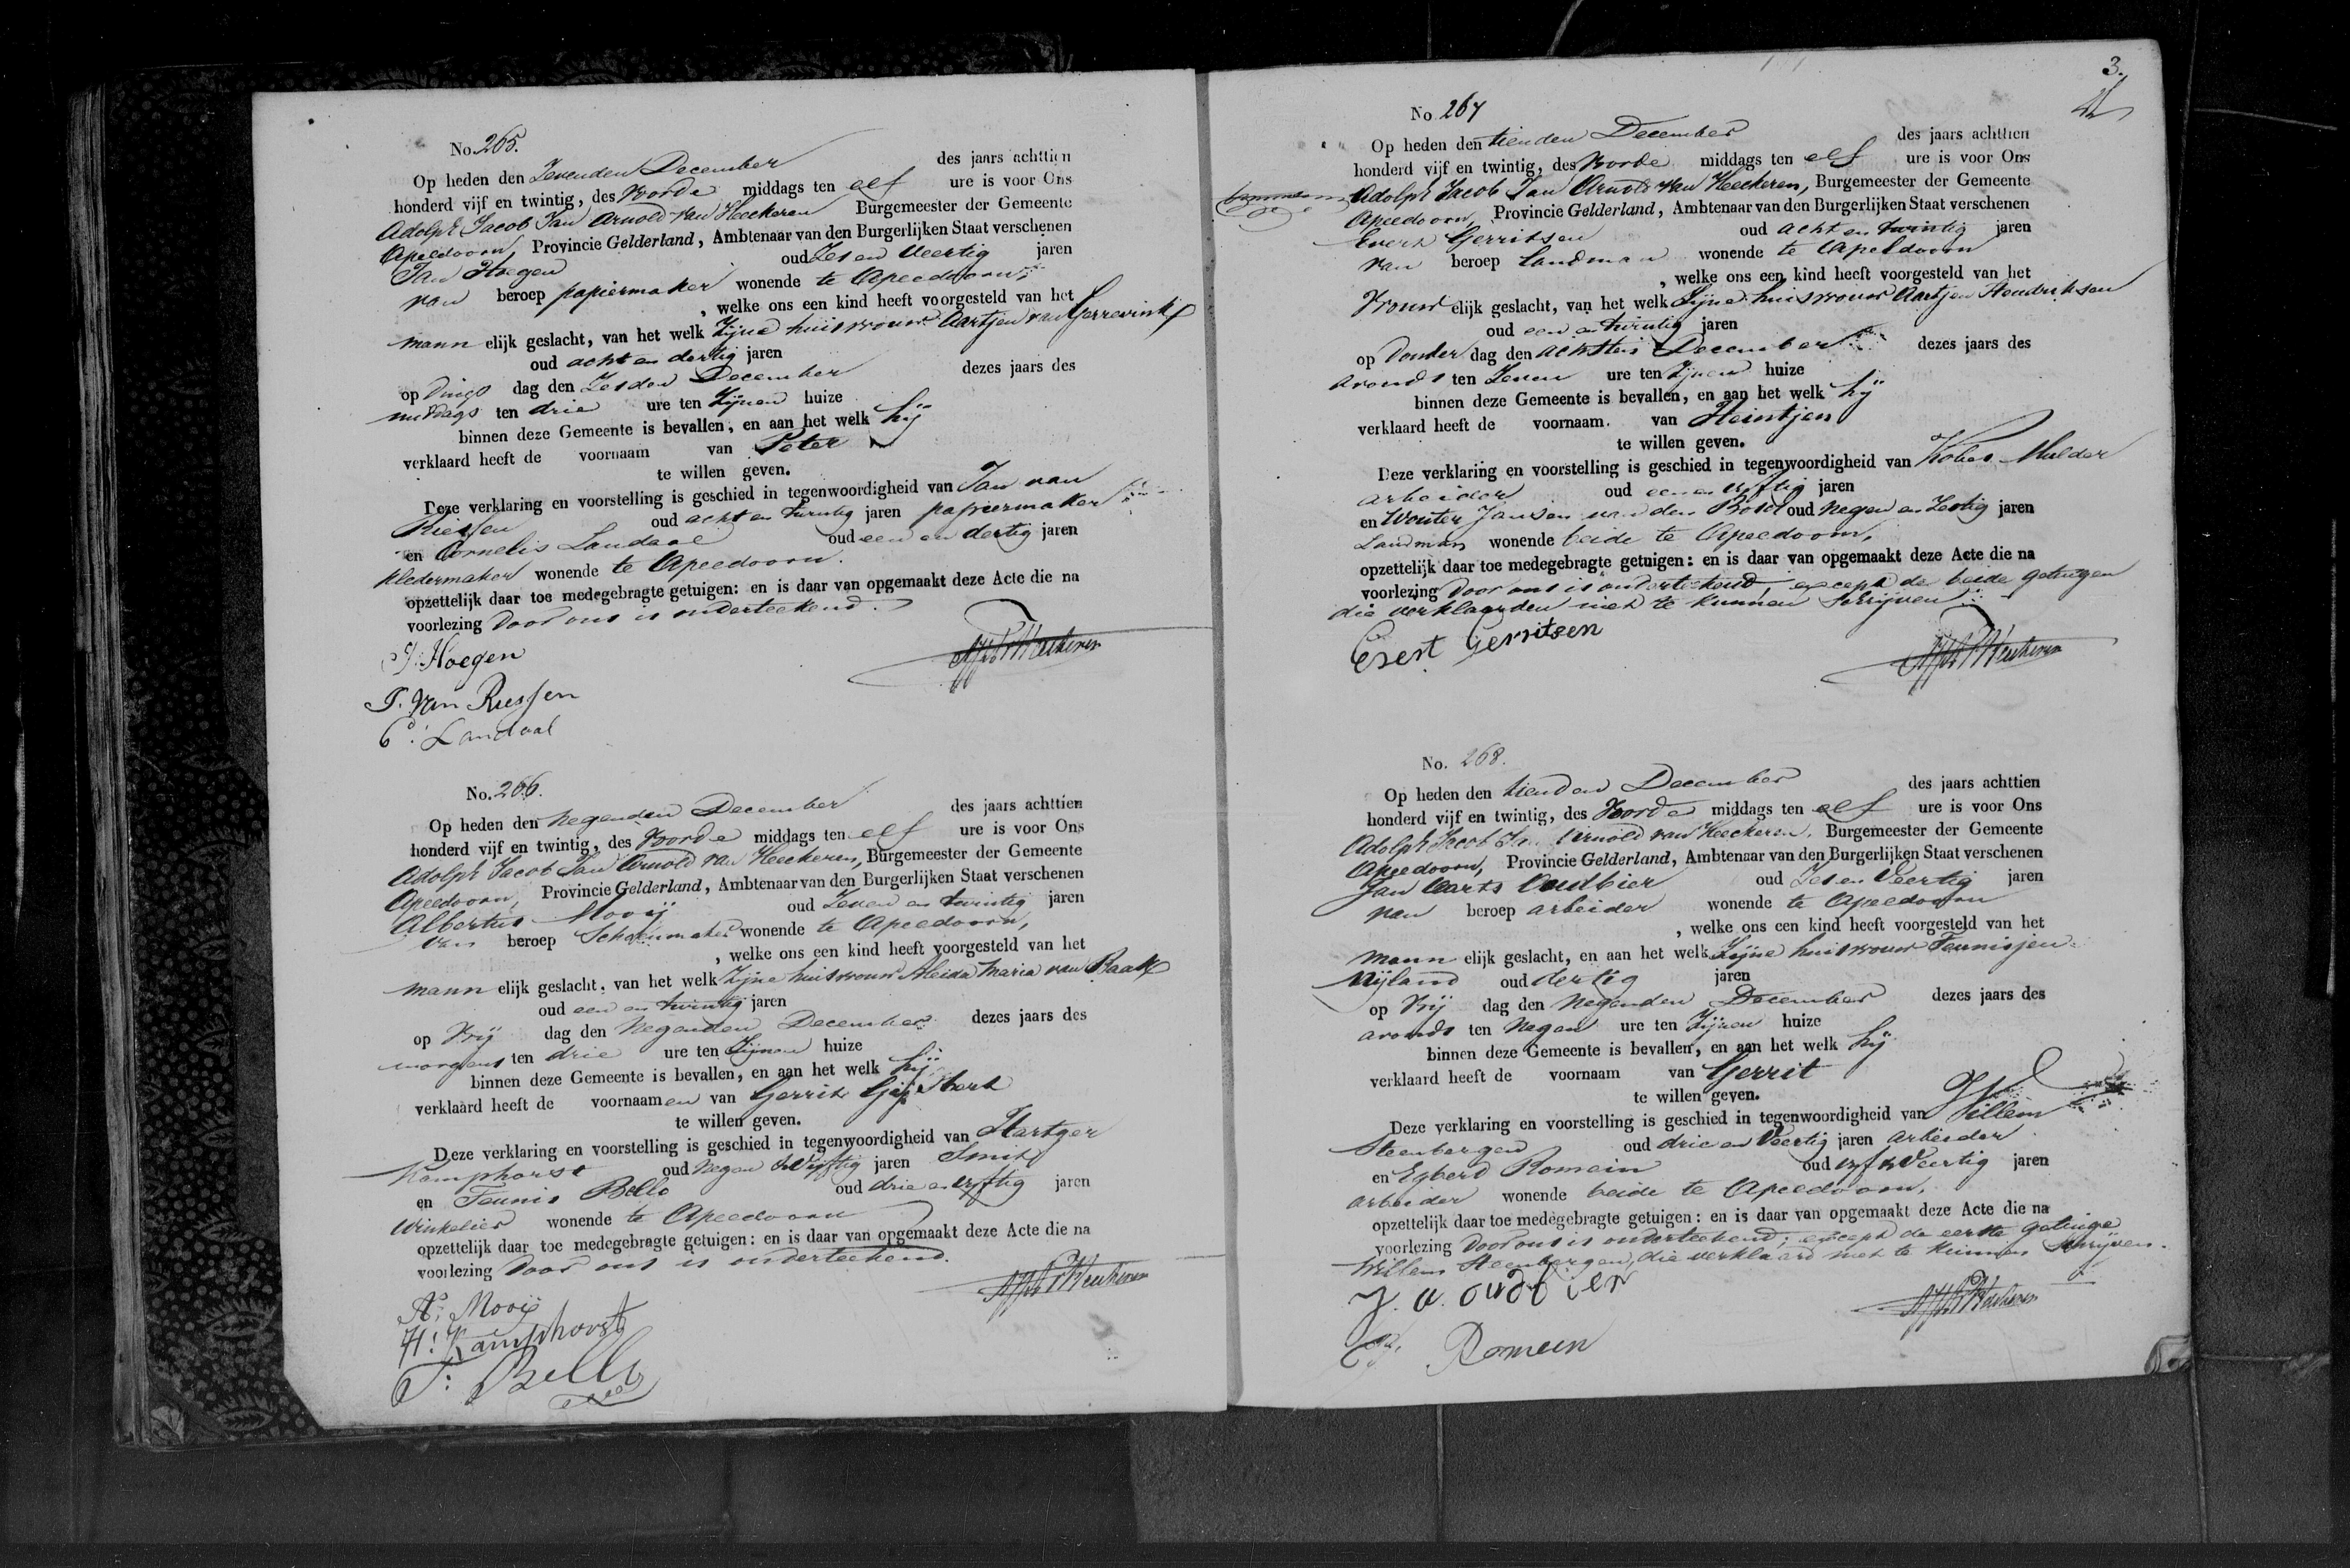 No. 265.
Op heden den Zevenden December des jaars achttien
honderd vijf en twintig, des Voorde middags ten elf ure is voor Ons
Adolph Jacob Jan Arnold van Heeckeren Burgemeester der Gemeente
Apeldoorn, Provincie Gelderland, Ambtenaar van den Burgerlijken Staat verschenen
Jan Hoegen oud Zes en Veertig jaren
van beroep papiermaker wonende te Apeldoorn,
, welke ons een kind heeft voorgesteld van het
mann elijk geslacht, van het welk Zijne huisvrouw Aartjen van Gerrevink
oud acht en dertig jaren
op Dings dag den Zesden December dezes jaars des
middags ten drie ure ten Zijnen huize
binnen deze Gemeente is bevallen, en aan het welk hij
verklaard heeft de voornaam van Peter
te willen geven.
Deze verklaring en voorstelling is geschied in tegenwoordigheid van Jan van
Riessen oud acht en twintig jaren papiermaker
en Cornelis Landaal oud een en dertig jaren
kledermaker wonende te Apeldoorn.
opzettelijk daar toe medegebragte getuigen: en is daar van opgemaakt deze Acte die na
voorlezing door ons is onderteekend.
J. Hoegen
J. van Riessen
C: Landaal
No. 266.
Op heden den Negenden December des jaars achttien
honderd vijf en twintig, des Voorde middags ten elf ure is voor Ons
Adolph Jacob Jan Arnold van Heeckeren, Burgemeester der Gemeente
Apeldoorn, Provincie Gelderland, Ambtenaar van den Burgerlijken Staat verschenen
Albertus Mooij oud Zeven en twintig jaren
van beroep Schoenmaker wonende te Apeldoorn,
, welke ons een kind heeft voorgesteld van het
mann elijk geslacht, van het welk Zijne huisvrouw Aleida Maria van Baak
oud een en twintig jaren
op Vrij dag den Negenden December dezes jaars des
morgens ten drie ure ten Zijnen huize
binnen deze Gemeente is bevallen, en aan het welk hij
verklaard heeft de voornaamen van Gerrit Gijsbert
te willen geven.
Deze verklaring en voorstelling is geschied in tegenwoordigheid van Hartger
Kamphorst oud Negen & Vijftig jaren Smit
en Teunis Belle oud drie en Vyftig jaren
Winkelier wonende te Apeldoorn
opzettelijk daar toe medegebragte getuigen: en is daar van opgemaakt deze Acte die na
voorlezing door ons is onderteekend.
A: Mooij
H: Kamphorst
T: Belle
3.
No 267
Op heden den tienden December des jaars achttien
honderd vijf en twintig, des Voorde middags ten elf ure is voor Ons
Adolph Jacob Jan Arnold van Heeckeren, Burgemeester der Gemeente
Apeldoorn, Provincie Gelderland, Ambtenaar van den Burgerlijken Staat verschenen
Evert Gerritsen oud acht en twintig jaren
van beroep Landman wonende te Apeldoorn
, welke ons een kind heeft voorgesteld van het
Vrouw elijk geslacht, van het welk Zijne huisvrouw Aartjen Hendriksen
oud een en twintig jaren
op Donder dag den achtsten December dezes jaars des
avonds ten Zeven ure ten Zijnen huize
binnen deze Gemeente is bevallen, en aan het welk hij
verklaard heeft de voornaam. van Heintjen
te willen geven.
Deze verklaring en voorstelling is geschied in tegenwoordigheid van Kobus Mulder
arbeider oud een en vyftig jaren
en Wouter Jansen van den Bosch oud Negen en Zestig jaren
Landman wonende beide te Apeldoorn,
opzettelijk daar toe medegebragte getuigen: en is daar van opgemaakt deze Acte die na
voorlezing door ons is onderteekend, except de beide getuigen
die verklaarden niet te kunnen Schrijven
Evert Gerritsen
No. 268.
Op heden den tienden December des jaars achttien
honderd vijf en twintig, des Voorde middags ten elf ure is voor Ons
Adolph Jacob Jan Arnold van Heeckeren, Burgemeester der Gemeente
Apeldoorn, Provincie Gelderland, Ambtenaar van den Burgerlijken Staat verschenen
Jan Aarts Oudbier oud Zes en Veertig jaren
van beroep arbeider wonende te Apeldoorn
, welke ons een kind heeft voorgesteld van het
mann elijk geslacht, en aan het welk Zijne huisvrouw Teunisjen
Nijland oud dertig jaren
op Vrij dag den Negenden December dezes jaars des
avonds ten Negen ure ten Zijnen huize
binnen deze Gemeente is bevallen, en aan het welk hij
verklaard heeft de voornaam van Gerrit
te willen geven.
Deze verklaring en voorstelling is geschied in tegenwoordigheid van Willem
Steenbergen oud drie en Veertig jaren arbeider
en Egbert Romein oud vyf & Veertig jaren
arbeider wonende beide te Apeldoorn,
opzettelijk daar toe medegebragte getuigen: en is daar van opgemaakt deze Acte die na
voorlezing door ons is onderteekend; except de eerste getuige
Willem Steenbergen, die verklaard niet te kunnen Schrijven.
J. a. oudbier
Eg. Romein